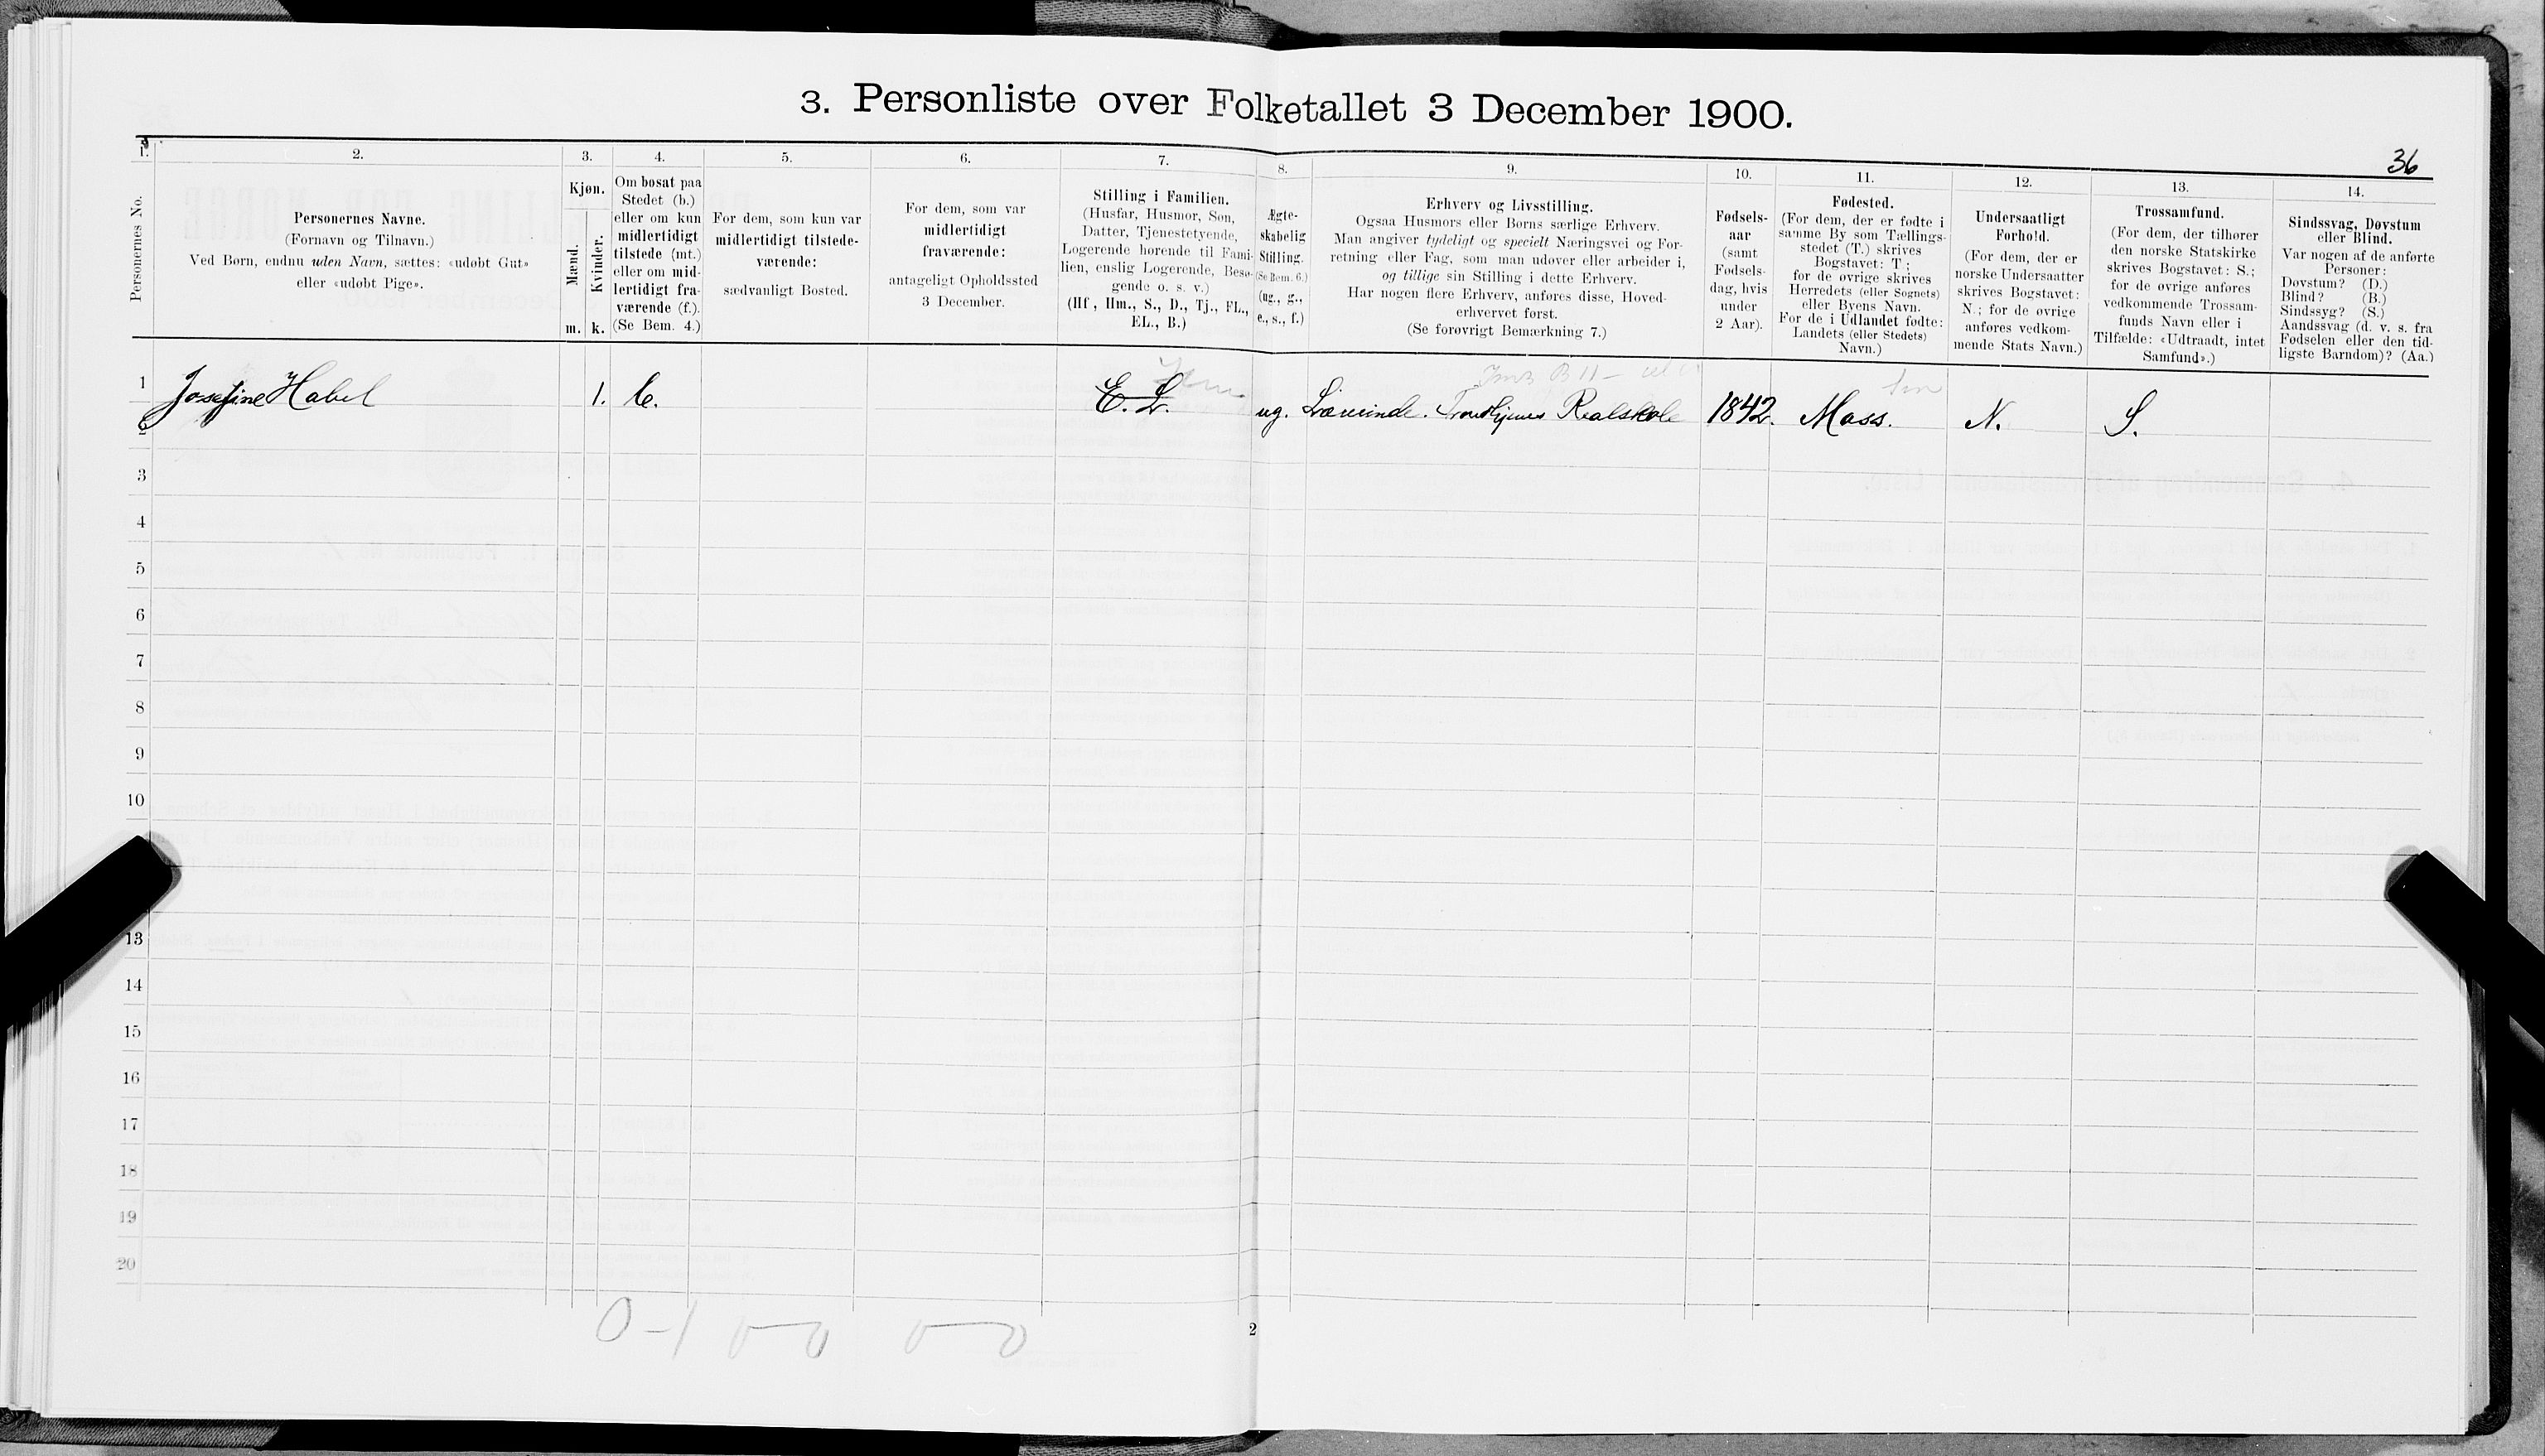 3. Personliste over Folketallet 3 December 1900.
36
1. 2. 3. 4. 5. 6. 7. 8. 9. 10. 11. 12. 13. 14.
Personernes No.
Personernes Navne.
(Fornavn og Tilnavn.)
Ved Børn, endnu uden Navn, sættes: «udøbt Gut»
eller «udøbt Pige».
Kjøn.
Mænd.
Kvinder.
m. k.
Om bosat paa
Stedet (b.)
eller om kun
midlertidigt
tilstede (mt.)
eller om mid-
lertidigt fra-
værende (f.).
(Se Bem. 4.)
For dem, som kun var
midlertidigt tilstede-
værende:
sædvanligt Bosted.
For dem, som var
midlertidigt
fraværende:
antageligt Opholdssted
3 December.
Stilling i Familien.
(Husfar, Husmor, Søn,
Datter, Tjenestetyende,
Logerende hørende til Fami-
lien, enslig Logerende, Besø-
gende o. s. v.)
(Hf., Hm., S., D., Tj., FL.,
EL., B.)
Ægte-
skabelig
Stilling.
(Se Bem. 6.)
(ug., g.,
e., s., f.)
Erhverv og Livsstilling.
Ogsaa Husmors eller Børns særlige Erhverv.
Man angiver tydeligt og specielt Næringsvei og For-
retning eller Fag, som man udøver eller arbeider i,
og tillige sin Stilling i dette Erhverv.
Har nogen flere Erhverv, anføres disse, Hoved-
erhvervet først.
(Se forøvrigt Bemærkning 7.)
Fødsels-
aar
(samt
Fødsels-
dag, hvis
under
2 Aar).
Fødested.
(For dem, der er fødte i
samme By som Tællings-
stedet (T.) skrives
Bogstavet: T;
for de øvrige skrives
Herredets (eller Sognets)
eller Byens Navn.
For de i Udlandet fødte:
Landets (eller Stedets)
Navn.)
Undersaatligt
Forhold.
(For dem, der er
norske Undersaatter
skrives Bogstavet:
N.; for de øvrige
anføres vedkom-
mende Stats Navn.)
Trossamfund.
(For dem, der tilhører
den norske Statskirke
skrives Bogstavet: S.;
for de øvrige anføres
vedkommende Trossam-
funds Navn eller i
Tilfælde: «Udtraadt, intet
Samfund».)
Sindssvag, Døvstum
eller Blind.
Var nogen af de anførte
Personer:
Døvstum? (D.)
Blind? (B.)
Sindssyg? (S.)
Aandssvag (d. v. s. fra
Fødselen eller den tid-
ligste Barndom)? (Aa.)
1 Josefine Habel 1. b. E. L. ug. Lærerinde. Trondhjems Realskole 1842. Moss. N. S.
2
3
4
5
6
7
8
9
10
13
14
15
16
17
18
19
20
0-1 0-0 0-0
2